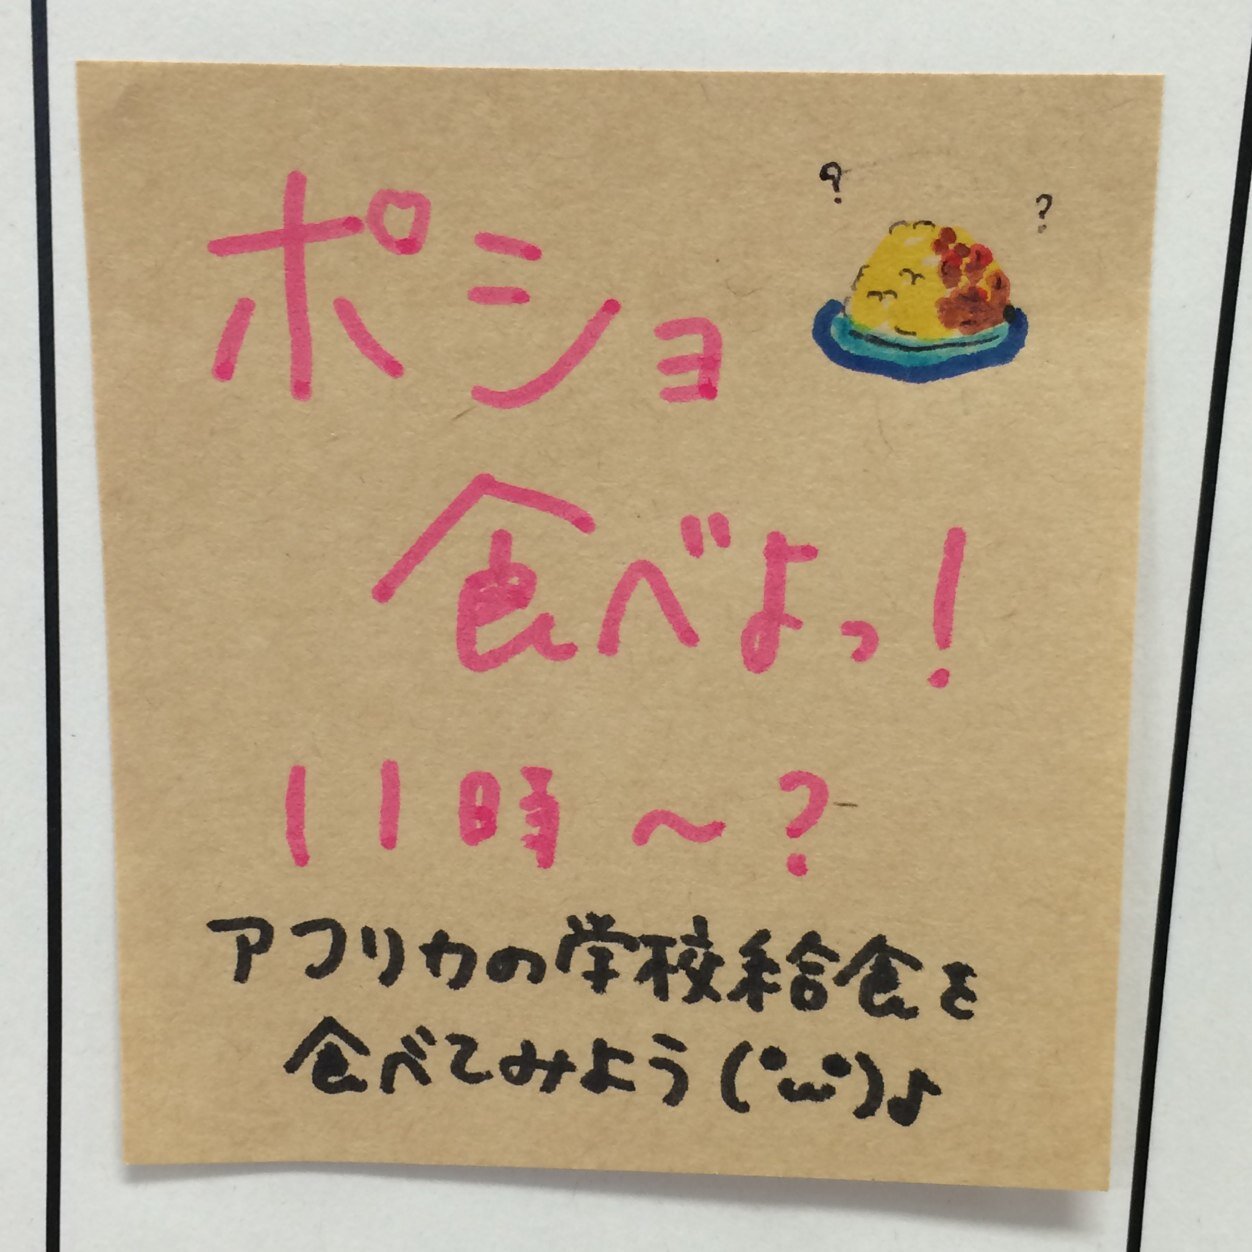 ポショ
? ?
食べよっ!
11時〜?
アフリカの学校給食を
食べてみよう(•ω•)♪